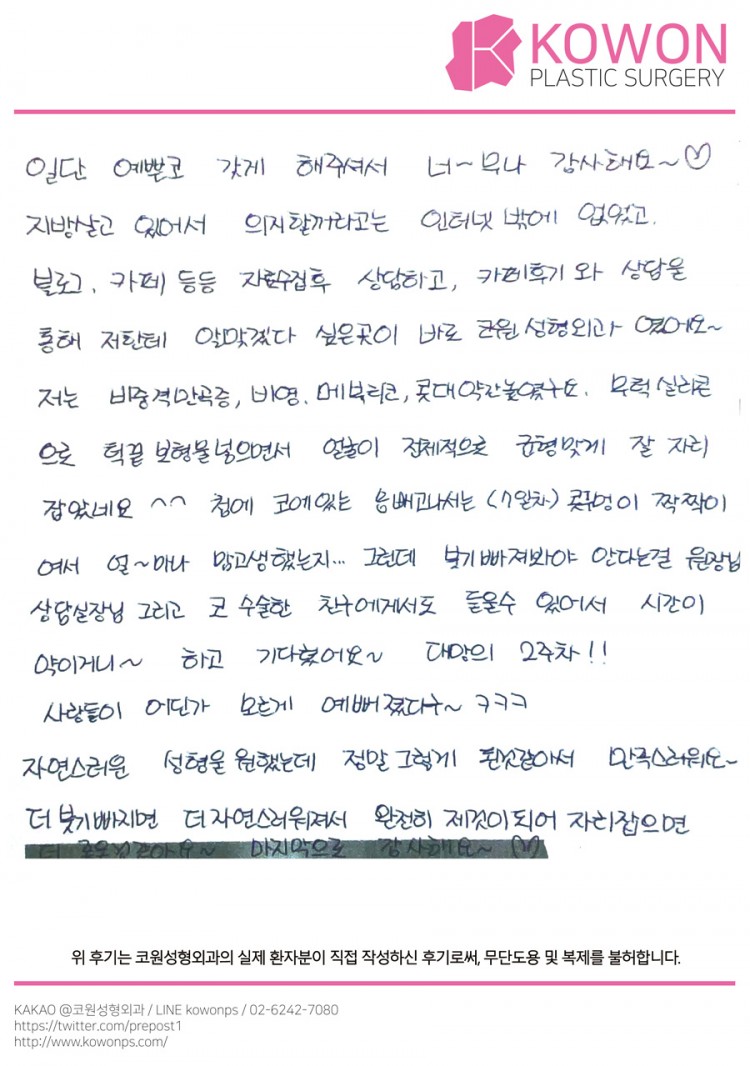 KOWON
PLASTIC SURGERY
일단 예쁠코 갖게 해주셔서 너~무나 감사해요~♡
지방살고 있어서 의지할꺼라고는 인터넷 밖에 없었고.
블로그, 카페 등등 자료수집후 상담하고, 카페후기와 상담을
통해 저한테 알맞겠다 싶은곳이 바로 코원성형외과 였어요~
저는 비중격만곡증, 비염, 메부리코, 콧대약간높였구요. 무럭실리콘
으로 턱끝 보형물넣으면서 얼굴이 전체적으로 균형맞게 잘 자리
잡았네요 ^^ 첨에 코에있는 솜빼고나서는 (7일차) 콧구멍이 짝짝이
여서 얼~마나 맘고생했는지... 그런데 붓기빠져봐야 안다는걸 원장님
상담실장님 그리고 코 수술한 친구에게서도 들을수 있어서 시간이
약이거니~ 하고 기다렸어요~ 대망의 2주차!!
사람들이 어딘가 모르게 예뻐졌다구~ ㅋㅋㅋ
자연스러운 성형을 원했는데 정말 그렇게 된것같아서 만족스러워요~
더 붓기빠지면 더자연스러워져서 완전히 제것이되어 자리잡으면
더 좋을것같아요~ 마지막으로 감사해요~ ♡
위 후기는 코원성형외과의 실제 환자분이 직접 작성하신 후기로써, 무단도용 및 복제를 불허합니다.
KAKAO @코원성형외과 / LINE kowonps / 02-6242-7080
https://twitter.com/prepost1
http://www.kowonps.com/